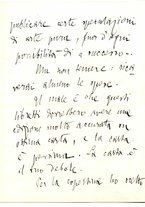 publicare certe speculazioni
di arte pura, fuor d'ogni
possibilità di successo.
Ma non temere: 
verrai almeno le spese.
Il male è che questi
libretti dovrebbero avere una
edizione molto accurata su
ottima carta, e la carta
è pessima. La carta è
il mio debole.
Per la copertina ho scelto